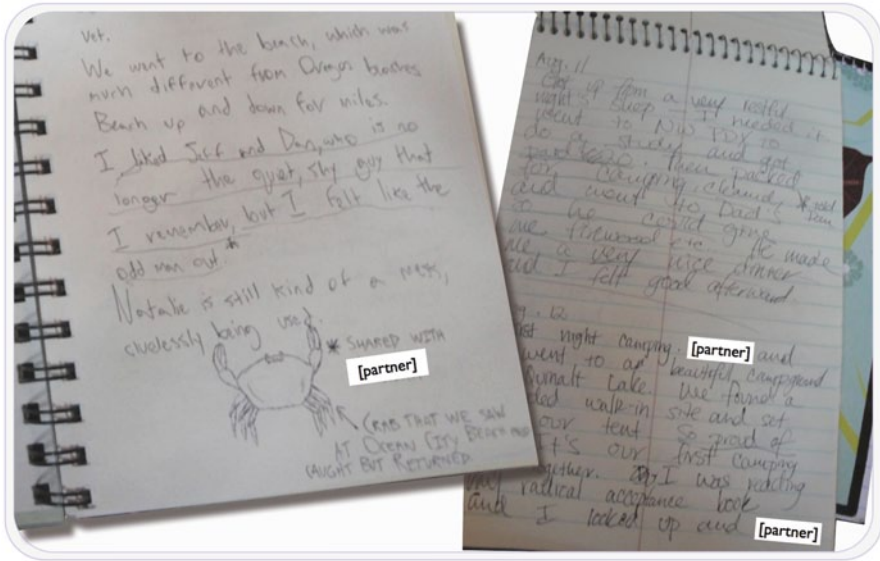 vet.
We went to the beach, which was
much different from Oregon beaches
Beach up and down for miles.
I liked Jeff and Dan, who is no
longer the quiet, shy guy that
I remember, but I felt like the
odd man out.*
Natalie is still kind of a mess,
cluelessly being used.
* SHARED WITH
[partner]
CRAB THAT WE SAW
AT OCEAN CITY BEACH AND
CAUGHT BUT RETURNED
Aug. 11
up from a very restful
night's sleep I needed it
went to NW PDX to
do a study and got
paid $220. Then packed
for camping, cleaned,
* told Dan
and went to Dad's
so he could give
me firewood etc. He made
me a very nice dinner
and I felt good afterward.
12
night camping. [partner] and
went to a beautiful campground
Lake. We found a
walk-in site and set
our tent so proud of
t's our first camping
together. I was reading
my radical acceptance book
and I looked up and [partner]